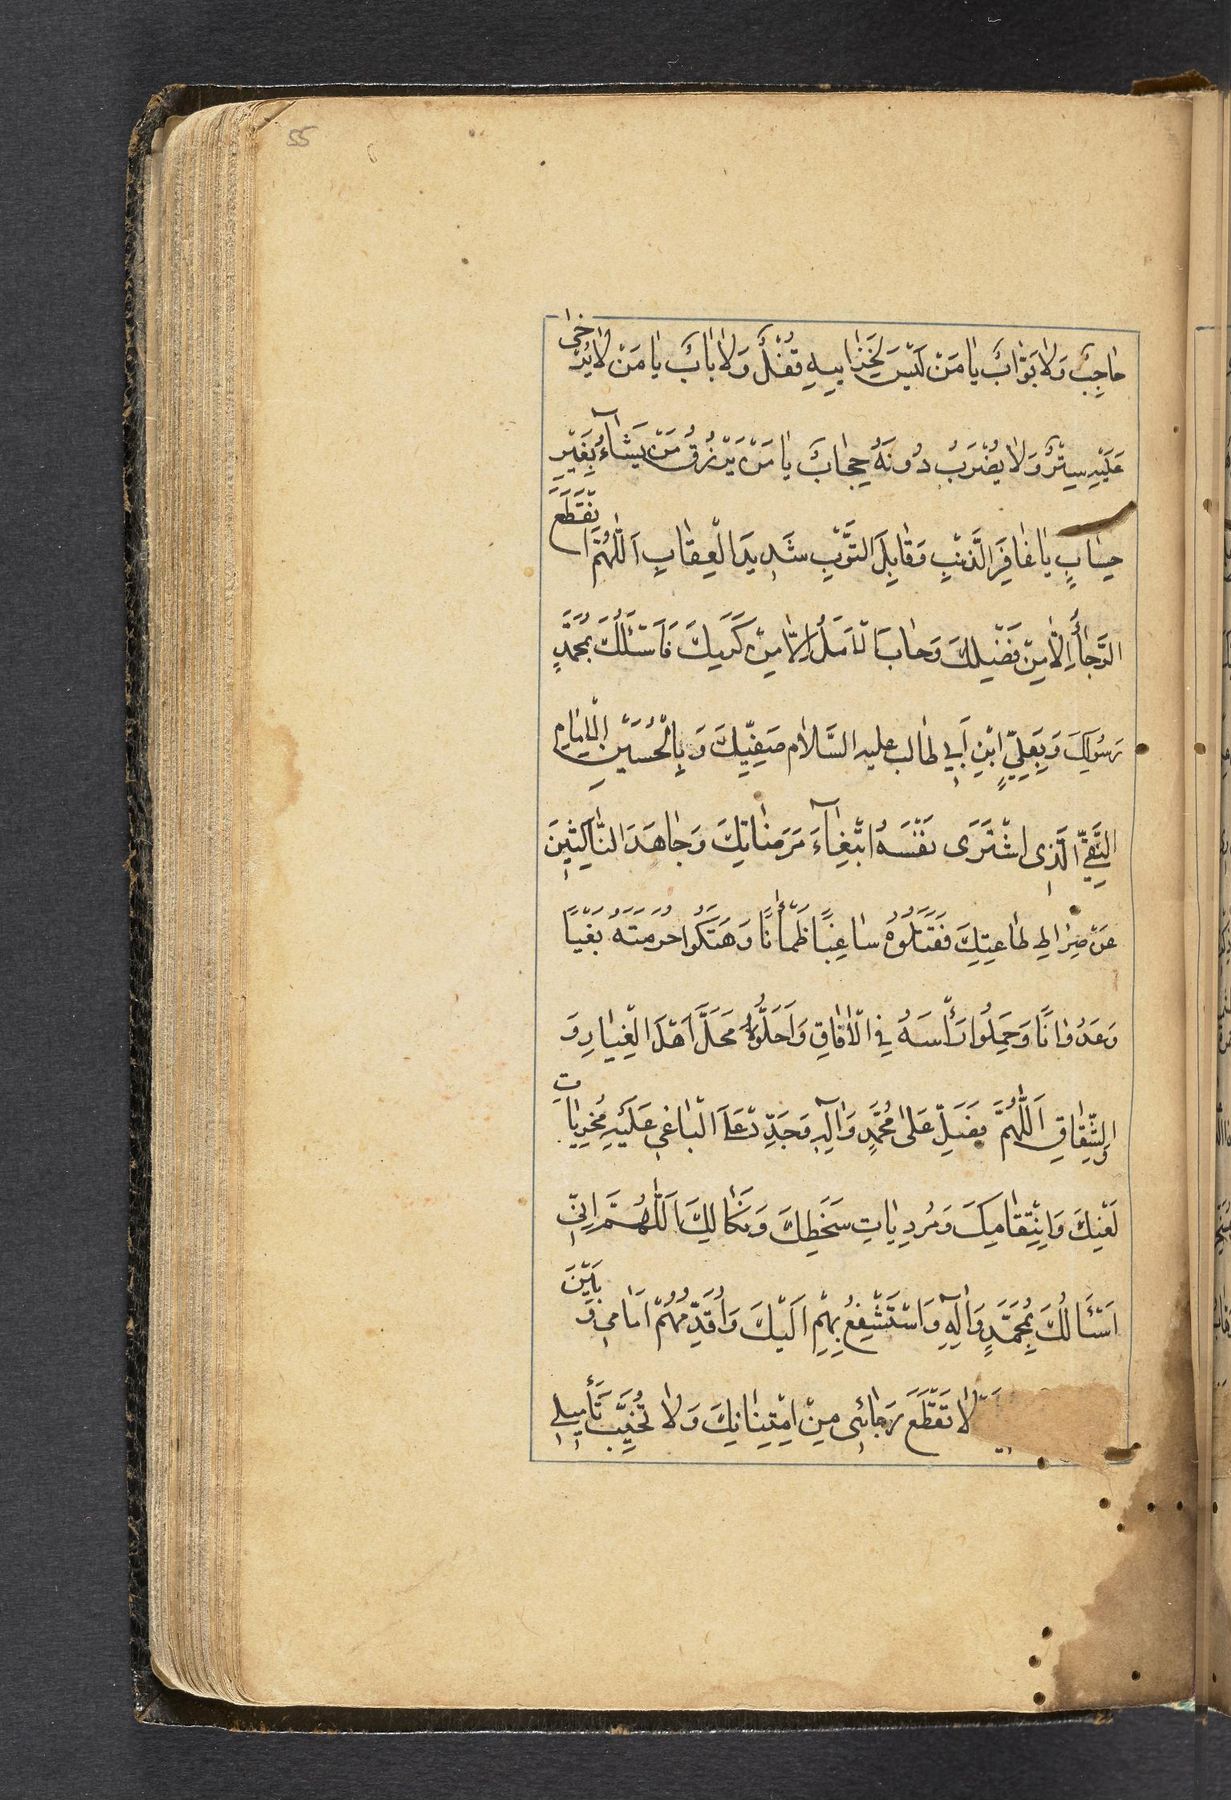 55
حاجِبٌ وَلا بَوّابٌ يا مَنْ لَيْسَ لِخَزائِنِهِ قُفْلٌ وَلا بابٌ يا مَنْ لا يُرْخى
عَلَيْهِ سِتْرٌ وَلا يُضْرَبُ دُونَهُ حِجابٌ يا مَنْ يَرْزُقُ مَنْ يَشآءُ بِغَيْرِ
حِسابٍ يا غافِرَ الذَّنْبِ وَقابِلَ التَّوْبِ شَدِيدَ الْعِقابِ اَللّهُمَّ انْقَطَعَ
الرَّجاءُ اِلّا مِنْ فَضْلِكَ وَخابَ الْاَمَلُ اِلّا مِنْ كَرَمِكَ فَاَسْئَلُكَ بِمُحَمَّدٍ
رَسُولِكَ وَبِعَلِيٍّ ابْنِ اَبي طالب عليه السَّلام صَفِيِّكَ وَبِالْحُسَيْنِ الْاِمامِ
التَّقِيِّ الَّذِى اشْتَرَى نَفْسَهُ ابْتِغآءَ مَرَضاتِكَ وَجاهَدَ النّاكِثِينَ
عَنْ صِراطِ طاعَتِكَ فَقَتَلُوهُ ساغِبًا ظَمْأنًا وَهَتَكُوا حُرْمَتَهُ بَغْيًا
وَعُدْوانًا وَحَمَلُوا رَأْسَهُ فِي الْافاقِ وَاَحَلُّوهُ مَحَلَّ اَهْلِ الْعِنادِ وَ
وَالشِّقاقِ اَللّهُمَّ فَصَلِّ عَلى مُحَمَّدٍ وَآلِهِ وَجَدِّدْ عَلَى الْباغي عَلَيْهِ مُخْزِياتِ
لَعْنِكَ وَانْتِقامِكَ وَمُرْدِياتِ سَخَطِكَ وَنَكالِكَ اَللّهُمَّ اِنِّي
اَسْئَالُكَ بِمُحَمَّدٍ وَآلِهِ وَاَسْتَشْفِعُ بِهِمْ اِلَيْكَ وَاُقَدِّمُهُمْ اَمامي وَ بَيْنَ
لا تَقْطَعَ رَجائِي مِنْ امْتِنانِكَ وَلا تُخَيِّبْ تَأْمِيلي